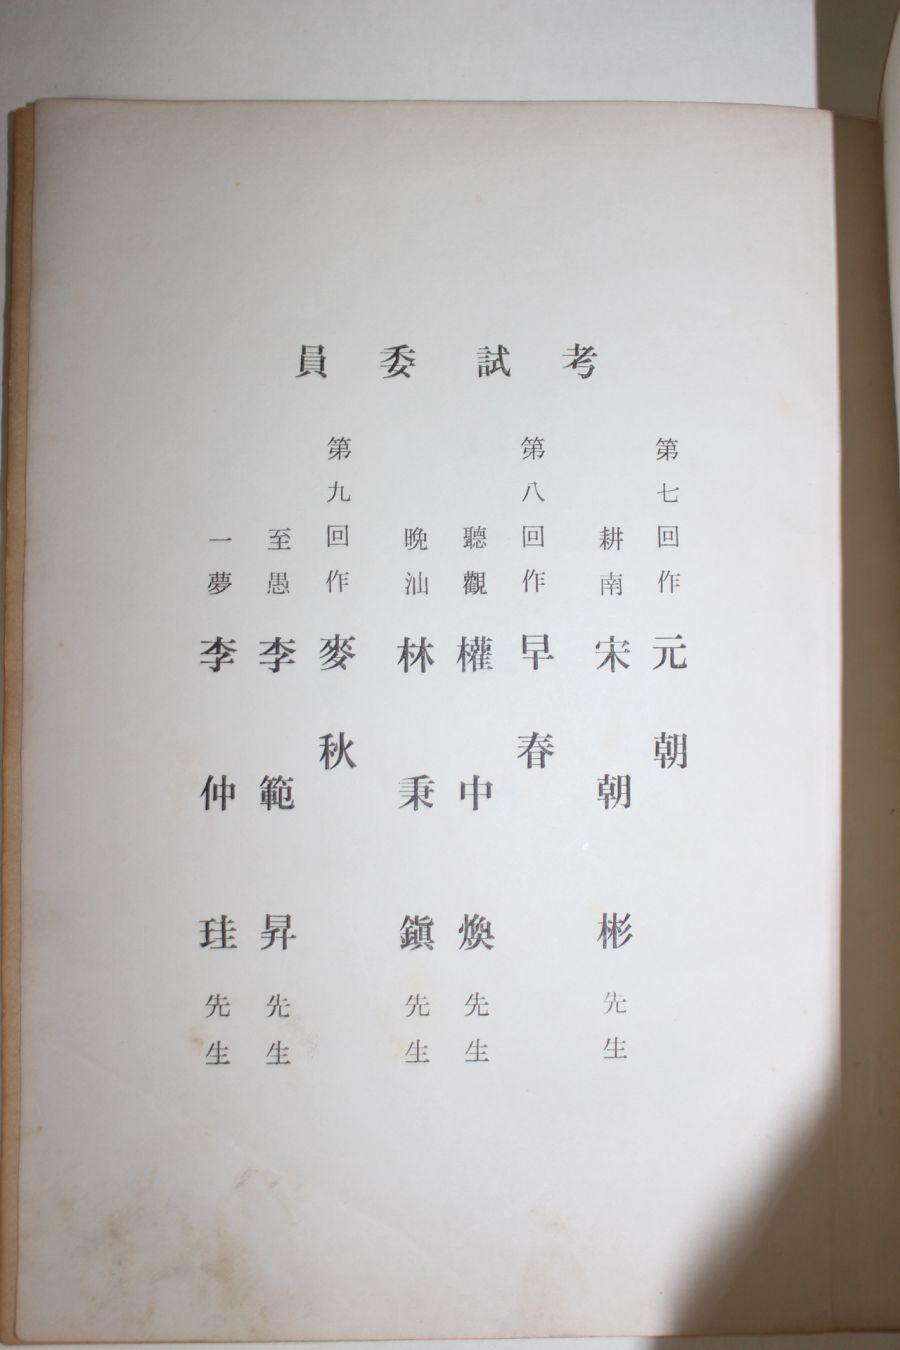 考試委員
第七回作 元朝
耕南 宋朝彬 先生
第八回作 早春
聽觀 權中煥 先生
晩汕 林秉鎭 先生
第九回作 麥秋
至愚 李範昇 先生
一夢 李仲珪 先生